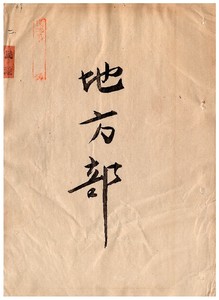 地方部